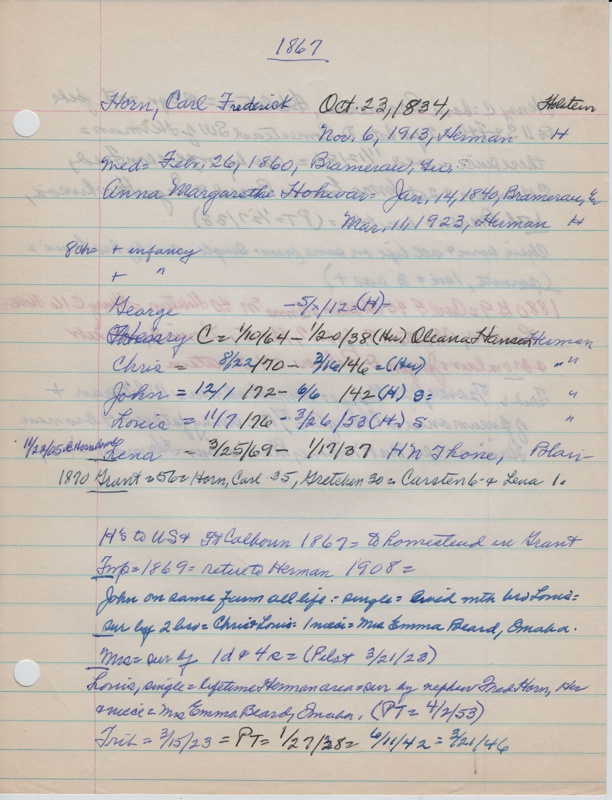 1867
Horn, Carl Frederick Oct. 23, 1834, Holstein
Nov. 6, 1913, Herman H
Md = Febr. 26, 1860, Bramerau, Ger.
Anna Margarethe Hohwar = Jan, 14, 1840, Bramerau, Ger
Mar. 11, 1923, Herman H
8 ch = + infancy
+ "
George - 5/x/12 = (H) -
Henry C = 1/10/64 - 1/20/38 (Hw) Oleana Hanson Herman
Chris = 8/22/70 - 3/16/46 = (Hw) " "
John = 12/1/72 - 6/6/42 (H) S = "
Louis = 11/7/76 - 3/26/53 (H) S "
11/28/65 Lena - 3/25/69 - 1/17/37 HN Thone, Blair -
1870 Grant = 56 = Horn, Carl 35, Gretchen 30 = Carsten 6 & Lena 1.
H's to US & Ft Calhoun 1867 = to homestead in Grant
Twp = 1869 = retire to Herman 1908 =
John on same farm all life = single = lived with bro Louis =
sur by 2 bro = Chris & Louis = 1 niece = Mrs Emma Beard, Omaha.
Mrs = sur by 1 d & 4 s = (Pilot 3/21/23)
Louis, single = lifetime Herman area = sur by nephew Fred Horn, Her
& niece = Mrs Emma Beard, Omaha. (PT = 4/2/53)
Trib = 3/15/23 = PT = 1/27/38 = 6/11/42 = 3/21/46